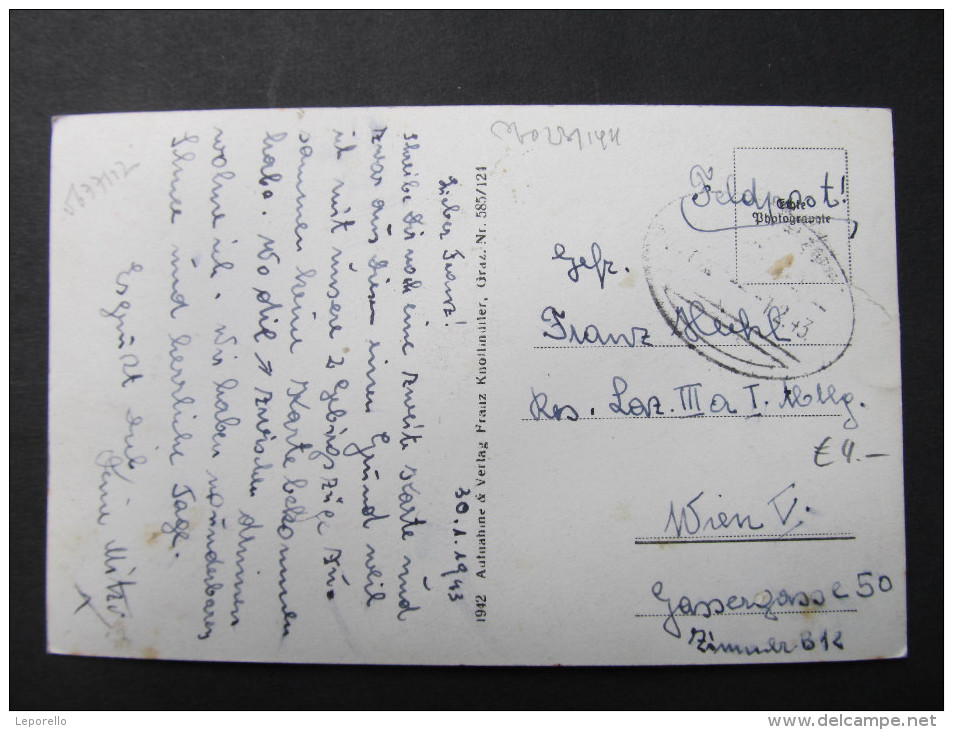 30.1.1943
Lieber Franz!
Schreibe Dir noch eine zweite Karte und
zwar aus diesen einen Grund weil
ich mit unsere 2 Gebirgszüge zu-
sammen keine Karte bekommen
habe. Wo die → zwischen drinnen
wohne ich. Wir haben wunderbaren
Schnee und herrliche Tage.
Es grüßt Dich
Deine Mitzi
X
1942 Aufnahme & Verlag Franz Knollmüller, Graz. Nr. 585/121
Feldpost!
Echte
Photographie
Gefr.
Franz
Res. Laz. III a I.
€ 4.-
Wien V.
Gassergasse 50
Zimmer B 12
Leporello
www.delcampe.net